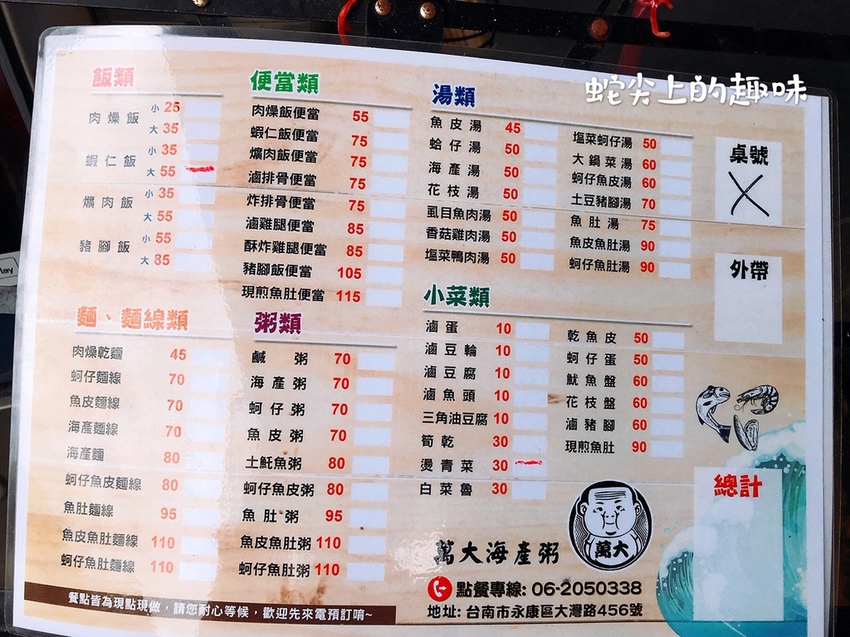 蛇尖上的趣味
飯類
肉燥飯 小 25
大 35
蝦仁飯 小 35
大 55
爌肉飯 小 35
大 55
豬腳飯 小 55
大 85
便當類
肉燥飯便當 55
蝦仁飯便當 75
爌肉飯便當 75
滷排骨便當 75
炸排骨便當 75
滷雞腿便當 85
酥炸雞腿便當 85
豬腳飯便當 105
現煎魚肚便當 115
湯類
魚皮湯 45
蛤仔湯 50
海產湯 50
花枝湯 50
虱目魚肉湯 50
香菇雞肉湯 50
塩菜鴨肉湯 50
塩菜蚵仔湯 50
大鍋菜湯 60
蚵仔魚皮湯 60
土豆豬腳湯 70
魚肚湯 75
魚皮魚肚湯 90
蚵仔魚肚湯 90
桌號
外帶
麵、麵線類
肉燥乾麵 45
蚵仔麵線 70
魚皮麵線 70
海產麵線 70
海產麵 80
蚵仔魚皮麵線 80
魚肚麵線 95
魚皮魚肚麵線 110
蚵仔魚肚麵線 110
粥類
鹹粥 70
海產粥 70
蚵仔粥 70
魚皮粥 70
土魠魚粥 80
蚵仔魚皮粥 80
魚肚粥 95
魚皮魚肚粥 110
蚵仔魚肚粥 110
小菜類
滷蛋 10
滷豆輪 10
滷豆腐 10
滷魚頭 10
三角油豆腐 10
筍乾 30
燙青菜 30
白菜魯 30
乾魚皮 50
蚵仔蛋 50
魷魚盤 60
花枝盤 60
滷豬腳 60
現煎魚肚 90
總計
萬大海產粥
萬大
點餐專線: 06-2050338
地址: 台南市永康區大灣路456號
餐點皆為現點現做，請您耐心等候，歡迎先來電預訂唷~